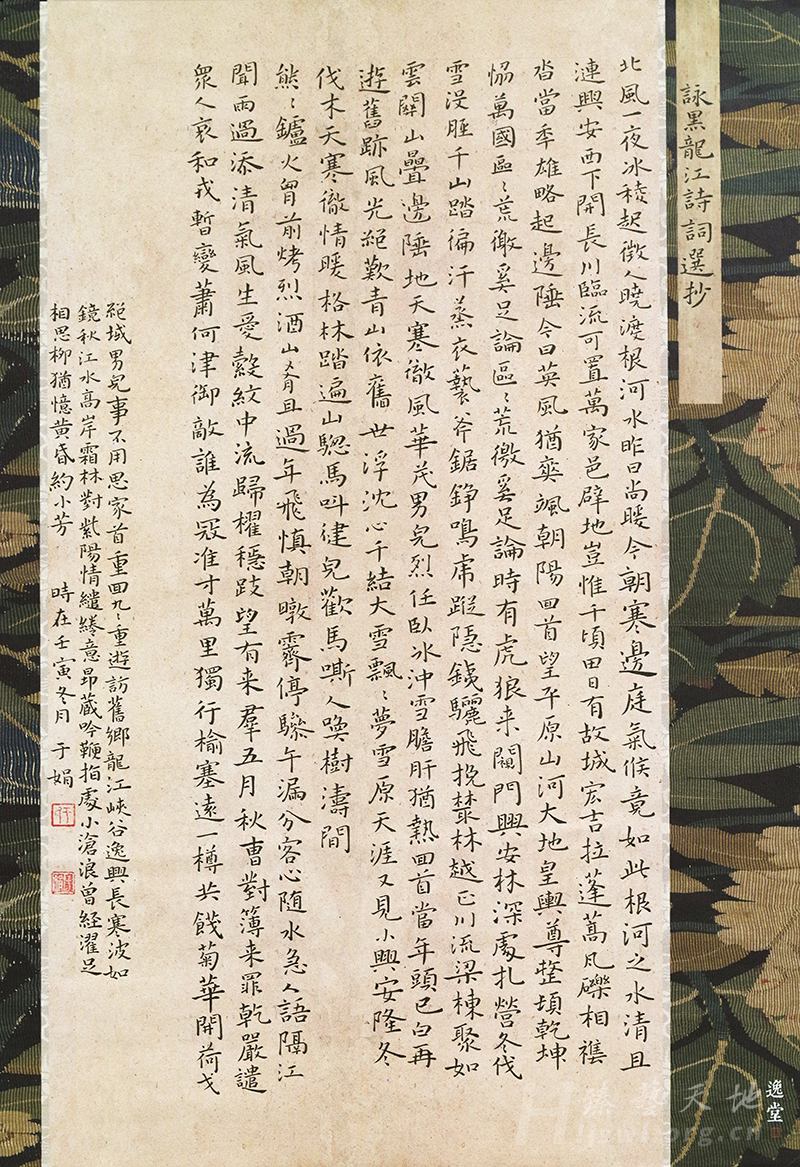 詠黑龍江詩詞選抄
北風一夜冰稜起徵人曉渡根河水昨日尚暖今朝寒邊庭氣候竟如此根河之水清且
漣興安西下開長川臨流可置萬家邑辟地豈惟千頃田日有故城宏吉拉蓬蒿凡礫相襍
沓當年雄略起邊陲今日英風猶奕颯朝陽回首望平原山河大地皇輿尊整頓乾坤
恊萬國區〻荒徼奚足論區〻荒徼奚足論時有虎狼来闖門興安林深處扎營冬伐
雪沒脛千山踏徧汗蒸衣褻斧鋸錚鳴虎蹤隱鐵驪飛挽藂林越正川流梁棟聚如
雲關山疊邊陲地天寒徹風華茂男兒烈任臥冰沖雪膽肝猶熱回首當年頭已白再
遊舊跡風光絕歎青山依舊世浮沈心千結大雪飄〻夢雪原天涯又見小興安隆冬
伐木天寒徹情暖格林踏遍山騘馬叫健兒歡馬嘶人喚樹濤間
熊〻鑪火胷前烤烈酒山肴且過年飛慎朝暾霽停驂午漏分客心随水急人語隔江
聞雨過添清氣風生愛縠紋中流歸櫂穩跂望有来羣五月秋曹對簿来罪乾嚴譴
衆人哀和戎暫變蕭何津御敵誰為寇准才萬里獨行榆塞遠一樽共餞菊華開荷戈
絕域男兒事不用思家首重回九〻重遊訪舊鄉龍江峽谷逸興長寒波如
鏡秋江水高岸霜林對紫陽情繾綣意昂藏吟鞭指處小滄浪曾経濯足
相思柳猶憶黄昏約小芳 時在壬寅冬月 于娟
逸堂